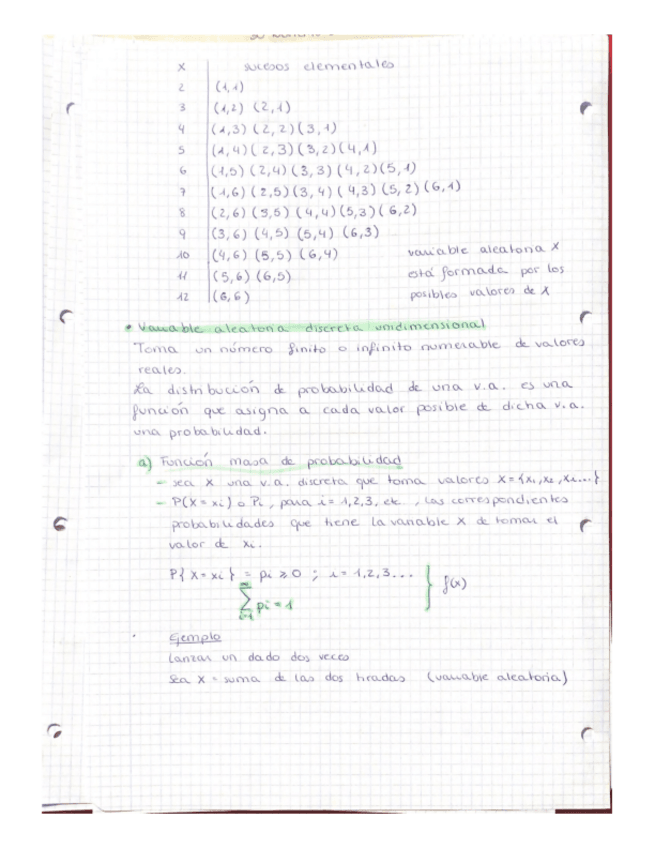 X sucesos elementales
2 (1,1)
3 (1,2) (2,1)
4 (1,3) (2,2) (3,1)
5 (1,4) (2,3) (3,2) (4,1)
6 (1,5) (2,4) (3,3) (4,2) (5,1)
7 (1,6) (2,5) (3,4) (4,3) (5,2) (6,1)
8 (2,6) (3,5) (4,4) (5,3) (6,2)
9 (3,6) (4,5) (5,4) (6,3)
10 (4,6) (5,5) (6,4) variable aleatoria X
11 (5,6) (6,5) está formada por los
12 (6,6) posibles valores de X
• Variable aleatoria discreta unidimensional
Toma un número finito o infinito numerable de valores
reales.
La distribución de probabilidad de una v.a. es una
función que asigna a cada valor posible de dicha v.a.
una probabilidad.
a) Función masa de probabilidad
- sea X una v.a. discreta que toma valores X={x₁,x₂,x₃...}
- P(X=xi) o Pi, para i=1,2,3, etc, las correspondientes
probabilidades que tiene la variable X de tomar el
valor de xi.
P{X=xi} = pi ≥ 0 ; i=1,2,3... } f(x)
∑ i=1 ∞ pi = 1
Ejemplo
Lanzar un dado dos veces
Sea X = suma de las dos tiradas (variable aleatoria)